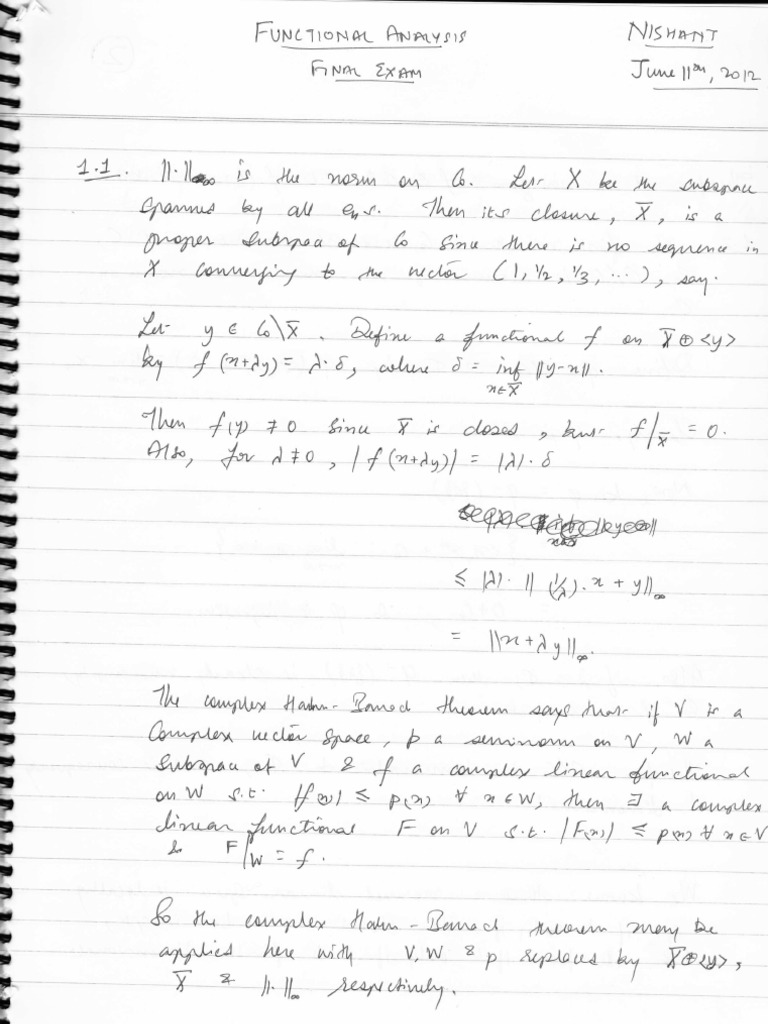 FUNCTIONAL ANALYSIS
NISHANT
FINAL EXAM
June 11th, 2012
1.1. ||·||∞ is the norm on C₀. Let X be the subspace
spanned by all eₙ's. Then its closure, X̄, is a
proper subspace of C₀ since there is no sequence in
X converging to the vector (1, 1/2, 1/3, ...), say.
Let y ∈ C₀\X̄. Define a functional f on X̄⊕<y>
by f(x+λy) = λ·δ, where δ = inf ||y-x||.
x∈X̄
Then f(y) ≠ 0 since X̄ is closed, but f|X̄ = 0.
Also, for λ≠0, |f(x+λy)| = |λ|·δ
≤ |λ|·||(1/λ)·x + y||∞
= ||x+λy||∞.
The complex Hahn-Banach theorem says that if V is a
complex vector space, p a seminorm on V, W a
subspace of V & f a complex linear functional
on W s.t. |f(x)| ≤ p(x) ∀ x∈W, then ∃ a complex
linear functional F on V s.t. |F(x)| ≤ p(x) ∀ x∈V
& F|W = f.
So the complex Hahn-Banach theorem may be
applied here with V, W & p replaced by X̄⊕<y>,
X̄ & ||·||∞ respectively.